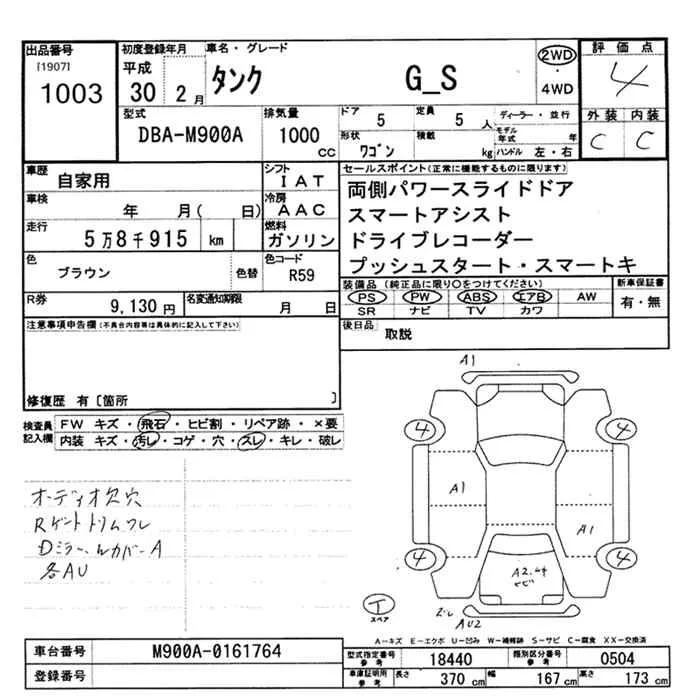 出品番号 初度登録年月 車名・グレード 評価点
[1907] 平成 タンク G_S 2WD ・ 4WD 4
1003 30 2月
型式 排気量 ドア 5 定員 5人 ディーラー・並行 外装 内装
DBA-M900A 1000cc 形状 ワゴン 積載 kg モデル年式 年 C C
ハンドル 左・右
車歴 自家用 シフト IAT セールスポイント(正常に機能するものに限ります)
車検 年 月( 日) 冷房 AAC 両側パワースライドドア
走行 5万8千915 km 燃料 ガソリン スマートアシスト
ドライブレコーダー
色 ブラウン 色替 色コード R59 プッシュスタート・スマートキ
R券 9,130円 名変通知期限 月 日 装備品(純正品に限り○をつけてください) 新車保証書
PS PW ABS エアB AW 有・無
SR ナビ TV カワ
注意事項申告欄(不具合内容等は具体的に記入して下さい) 後日品 取説
修復歴 有〔箇所 〕
検査員記入欄 FW キズ・飛石・ヒビ割・リペア跡・×要
内装 キズ・汚レ・コゲ・穴・スレ・キレ・破レ
A1
4 4
A1 A1
オーディオ欠穴
Rゲートトリムワレ
DミラーカバーA
各AU
4 4
スペア
AU2
A-キズ E-エクボ U-凹み W-補修跡 S-サビ C-腐食 XX-交換済
車台番号 M900A-0161764 型式指定番号 参考 18440 類別区分番号 参考 0504
登録番号 車庫証明用 参考 長さ 370cm 幅 167cm 高さ 173cm